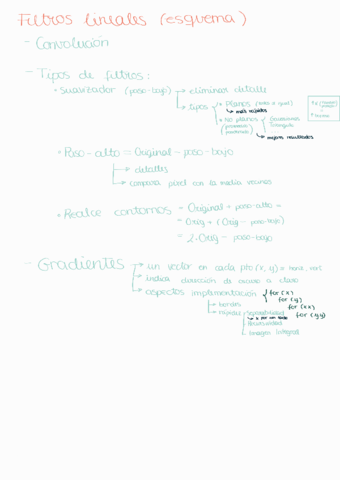 Filtros lineales (esquema)
- Convolución
- Tipos de filtros:
• Suavizador (paso-bajo) → eliminar detalle
→ tipos → Planos (todo x igual)
↳ más rápidos
→ No planos
(promedio ponderado)
Gaussiana
Triangular
↳ mejores resultados
• Paso-alto = Original - paso-bajo
→ detalles
→ compara pixel con la media vecinos
• Realce contornos = Original + paso-alto =
= Orig + (Orig - paso-bajo)
= 2·Orig - paso-bajo
- Gradientes → un vector en cada pto (x, y)
→ indica dirección de oscuro a claro
→ aspectos implementación { for (x)
for (y)
for (xx)
for (yy)
→ bordes
→ rapidez → Separabilidad
→ Recursividad
→ Imagen integral